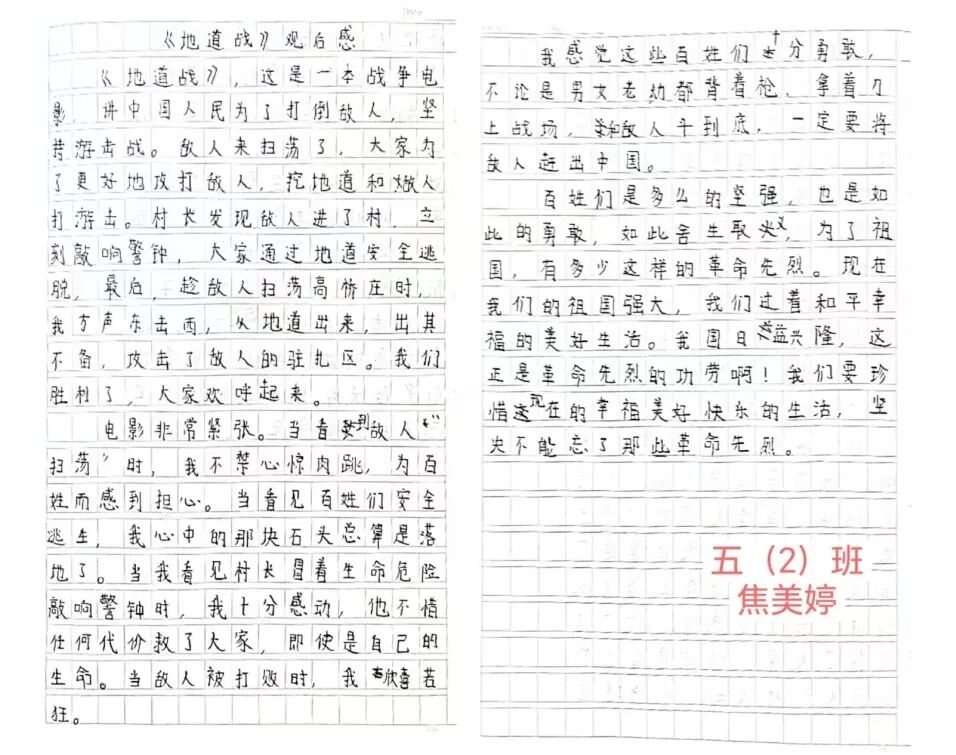 《地道战》观后感
《地道战》，这是一本战争电
影，讲中国人民为了打倒敌人，坚
持游击战。敌人来扫荡了，大家为
了更好地攻打敌人，挖地道和敌人
打游击。村长发现敌人进了村，立
刻敲响警钟，大家通过地道安全逃
脱，最后，趁敌人扫荡高桥庄时，
我方声东击西，从地道出来，出其
不备，攻击了敌人的驻扎区。我们
胜利了，大家欢呼起来。
电影非常紧张。当看到敌人“
扫荡”时，我不禁心惊肉跳，为百
姓而感到担心。当看见百姓们安全
逃生，我心中的那块石头总算是落
地了。当我看见村长冒着生命危险
敲响警钟时，我十分感动，他不惜
任何代价救了大家，即使是自己的
生命。当敌人被打败时，我欣喜若
狂。
我感觉这些百姓们十分勇敢，
不论是男女老幼都背着枪、拿着刀
上战场，和敌人斗到底，一定要将
敌人赶出中国。
百姓们是多么的坚强，也是如
此的勇敢，如此舍生取义，为了祖
国，有多少这样的革命先烈。现在
我们的祖国强大，我们过着和平幸
福的美好生活。我国日益兴隆，这
正是革命先烈的功劳啊！我们要珍
惜现在的幸福美好快乐的生活，坚
决不能忘了那些革命先烈。
五（2）班
焦美婷